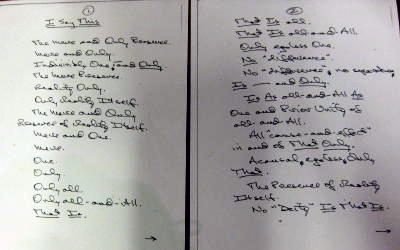 1
I Say This
The Mere and Only Presence.
Mere and Only.
Indivisibly One, and Only.
The Mere Presence.
Reality Only.
Only Reality Itself.
The Mere and Only
Presence of Reality Itself.
Mere and One.
Mere.
One.
Only.
Only all.
Only all-and-All.
That Is.
→
2
That Is all.
That Is all-and-All.
Only egoless One.
No "difference".
No "difference", no separation,
Is — and Only.
Is As all-and-All As
One and Prior Unity of
all-and-All.
All "cause-and-effect"
in and of That Only.
Acausal, egoless, Only
That.
The Presence of Reality
Itself.
No "Deity" Is That Is.
→